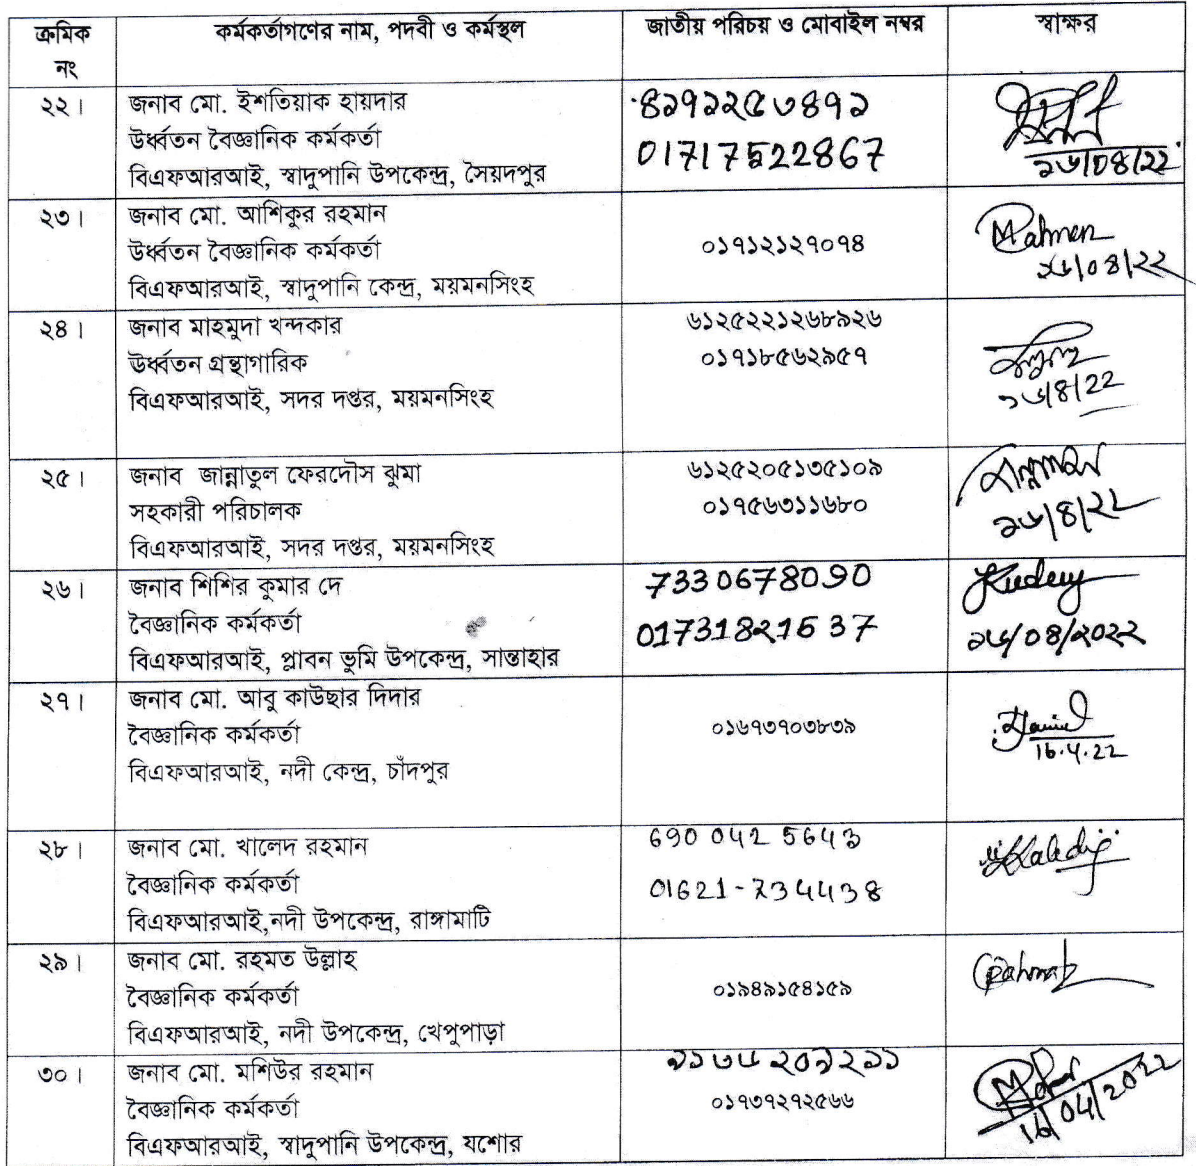 ক্রমিক নং
কর্মকর্তাগণের নাম, পদবী ও কর্মস্থল
জাতীয় পরিচয় ও মোবাইল নম্বর
স্বাক্ষর
২২।
জনাব মো. ইশতিয়াক হায়দার
উর্ধ্বতন বৈজ্ঞানিক কর্মকর্তা
বিএফআরআই, স্বাদুপানি উপকেন্দ্র, সৈয়দপুর
01717522867
২৬/08/22
২৩।
জনাব মো. আশিকুর রহমান
উর্ধ্বতন বৈজ্ঞানিক কর্মকর্তা
বিএফআরআই, স্বাদুপানি কেন্দ্র, ময়মনসিংহ
০১৭১২১২৭০৭৪
২৬/০8/২২
২৪।
জনাব মাহমুদা খন্দকার
উর্ধ্বতন গ্রন্থাগারিক
বিএফআরআই, সদর দপ্তর, ময়মনসিংহ
৬১২৫২২১২৬৮৯২৬
০১৭১৮৫৬২৯৫৭
১৬/৪/22
২৫।
জনাব জান্নাতুল ফেরদৌস ঝুমা
সহকারী পরিচালক
বিএফআরআই, সদর দপ্তর, ময়মনসিংহ
৬১২৫২০৫১৩৫১০৯
০১৭৫৬৩১১৬৮০
১৬/৪/২২
২৬।
জনাব শিশির কুমার দে
বৈজ্ঞানিক কর্মকর্তা
বিএফআরআই, প্লাবন ভূমি উপকেন্দ্র, সান্তাহার
7330678090
01731821537
১৬/০8/২০২২
২৭।
জনাব মো. আবু কাউছার দিদার
বৈজ্ঞানিক কর্মকর্তা
বিএফআরআই, নদী কেন্দ্র, চাঁদপুর
০১৬৭৩৭০৩৮৩৯
16.4.22
২৮।
জনাব মো. খালেদ রহমান
বৈজ্ঞানিক কর্মকর্তা
বিএফআরআই,নদী উপকেন্দ্র, রাঙ্গামাটি
690 042 5643
01621-734438
২৯।
জনাব মো. রহমত উল্লাহ
বৈজ্ঞানিক কর্মকর্তা
বিএফআরআই, নদী উপকেন্দ্র, খেপুপাড়া
০১৯৪৯১৫৪১৫৯
Rahmat
৩০।
জনাব মো. মশিউর রহমান
বৈজ্ঞানিক কর্মকর্তা
বিএফআরআই, স্বাদুপানি উপকেন্দ্র, যশোর
০১৭৩৭২৭২৫৬৬
16/04/2022